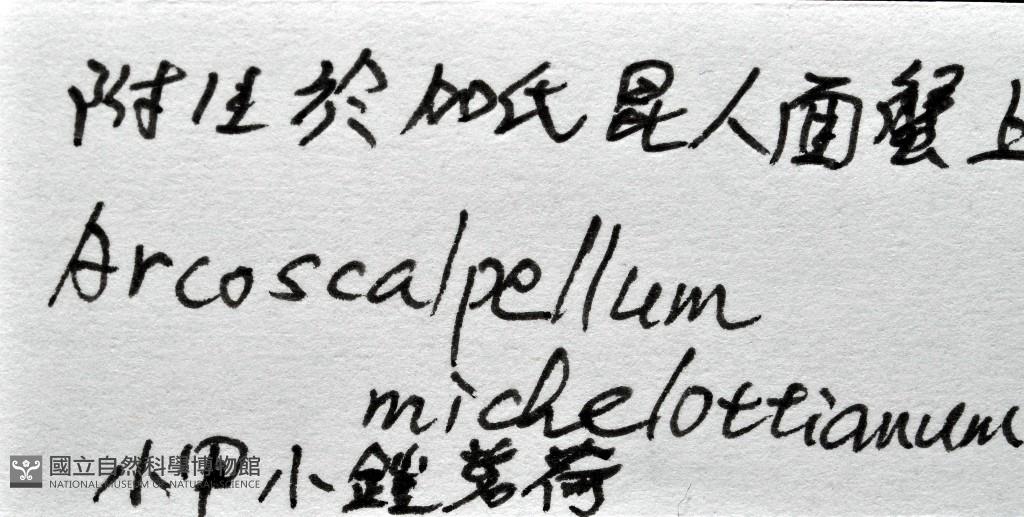 附生於加氏昆人面蟹上
Arcoscalpellum
michelottianum
水甲小鎧茗荷
國立自然科學博物館
NATIONAL MUSEUM OF NATURAL SCIENCE